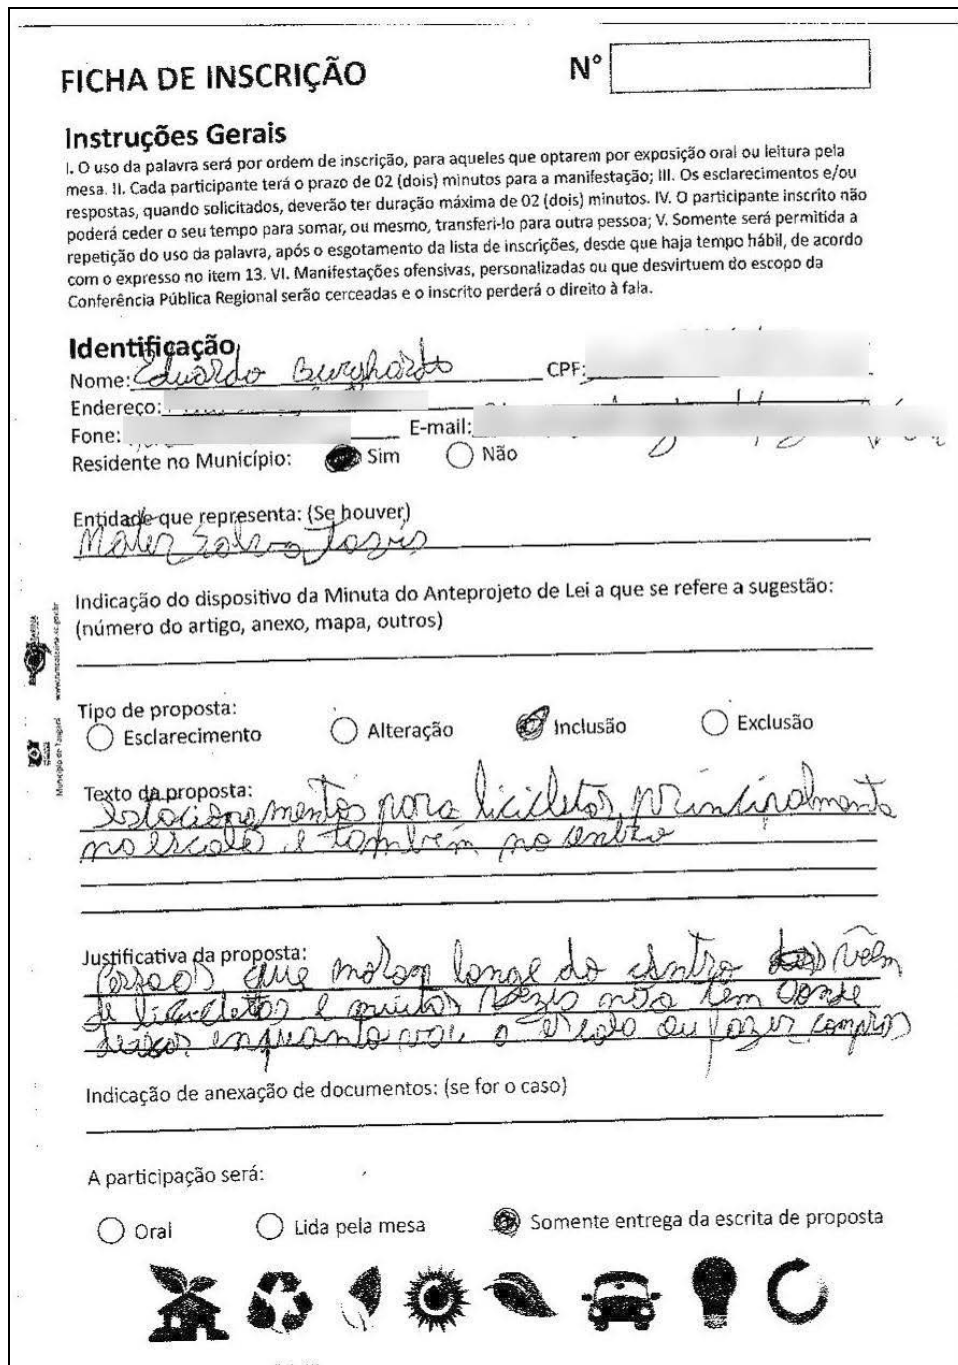 FICHA DE INSCRIÇÃO
N°
Instruções Gerais
I. O uso da palavra será por ordem de inscrição, para aqueles que optarem por exposição oral ou leitura pela
mesa. II. Cada participante terá o prazo de 02 (dois) minutos para a manifestação; III. Os esclarecimentos e/ou
respostas, quando solicitados, deverão ter duração máxima de 02 (dois) minutos. IV. O participante inscrito não
poderá ceder o seu tempo para somar, ou mesmo, transferi-lo para outra pessoa; V. Somente será permitida a
repetição do uso da palavra, após o esgotamento da lista de inscrições, desde que haja tempo hábil, de acordo
com o expresso no item 13. VI. Manifestações ofensivas, personalizadas ou que desvirtuem do escopo da
Conferência Pública Regional serão cerceadas e o inscrito perderá o direito à fala.
Identificação
Nome: Eduardo Burghardt CPF:
Endereço:
Fone: E-mail:
Residente no Município: Sim Não
Entidade que representa: (Se houver)
Mater
Indicação do dispositivo da Minuta do Anteprojeto de Lei a que se refere a sugestão:
(número do artigo, anexo, mapa, outros)
Tipo de proposta:
Esclarecimento Alteração Inclusão Exclusão
Texto da proposta:
estacionamentos para bicicletas, principalmente
na escola e também no centro
Justificativa da proposta:
Pessoas que moram longe do centro vêem
de bicicletas e muitas vezes não têm aonde
deixar enquanto vai a escola ou fazer compras
Indicação de anexação de documentos: (se for o caso)
A participação será:
Oral Lida pela mesa Somente entrega da escrita de proposta
Município de Tangará